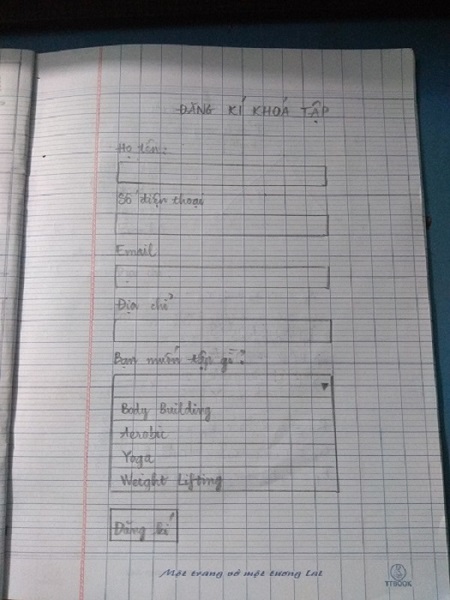 ĐĂNG KÍ KHOÁ TẬP
Họ tên:
Số điện thoại
Email
Địa chỉ
Bạn muốn tập gì?
Body Building
Aerobic
Yoga
Weight Lifting
Đăng kí
Một trang vở một tương lai
YTBOOK